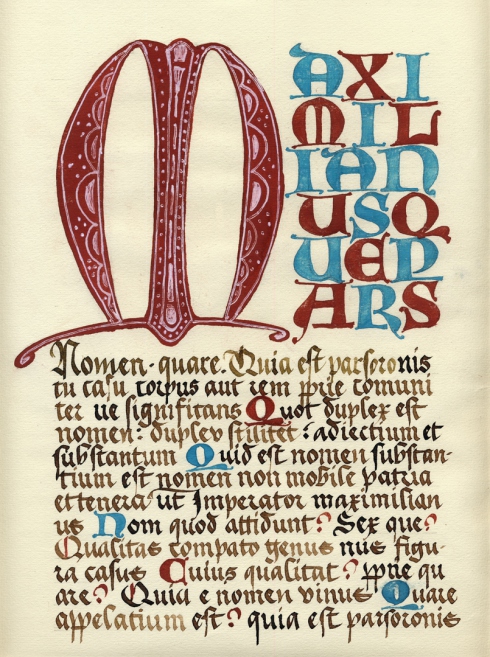 M
AXI
MIL
IAN
USQ
UEP
ARS
Nomen · quare. Quia est parsoronis
tu casu corpus aut rem pprie comuni
ter ue significans Quot duplex est
nomen: duplev scilitet : adiectium et
substantum Quid est nomen substan-
tium est nomen non mobile patria
et tenera ut Imperator maximilian
us Nom quod attidunt? Sex que?
Qualitas compato genus nus figu-
ra casus Cuius qualitat? pprie qu
are? Quia e nomen vinus Quare
appelatium est? quia est parsoronis